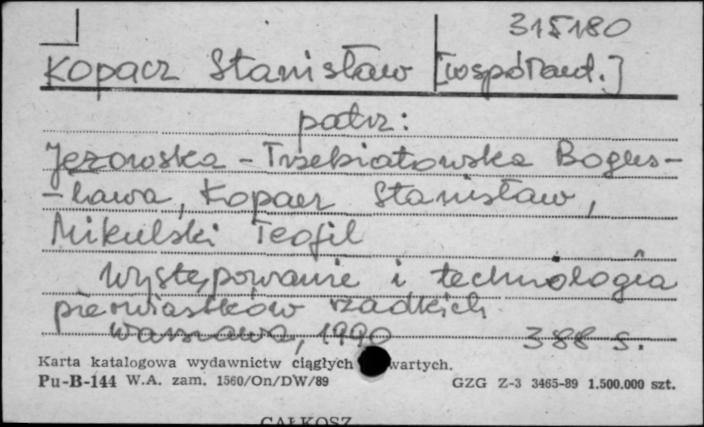 315180
Kopacz Stanisław [współaut.]
patrz:
Jeżowska-Trzebiatowska Bogus-
-ława, Kopacz Stanisław,
Mikulski Teofil
Występowanie i technologia
pierwiastków rzadkich
Warszawa, 1990 388 s.
Karta katalogowa wydawnictw ciągłych wartych.
Pu-B-144 W.A. zam. 1560/On/DW/89 GZG Z-3 3465-89 1.500.000 szt.
CAŁKOSZ